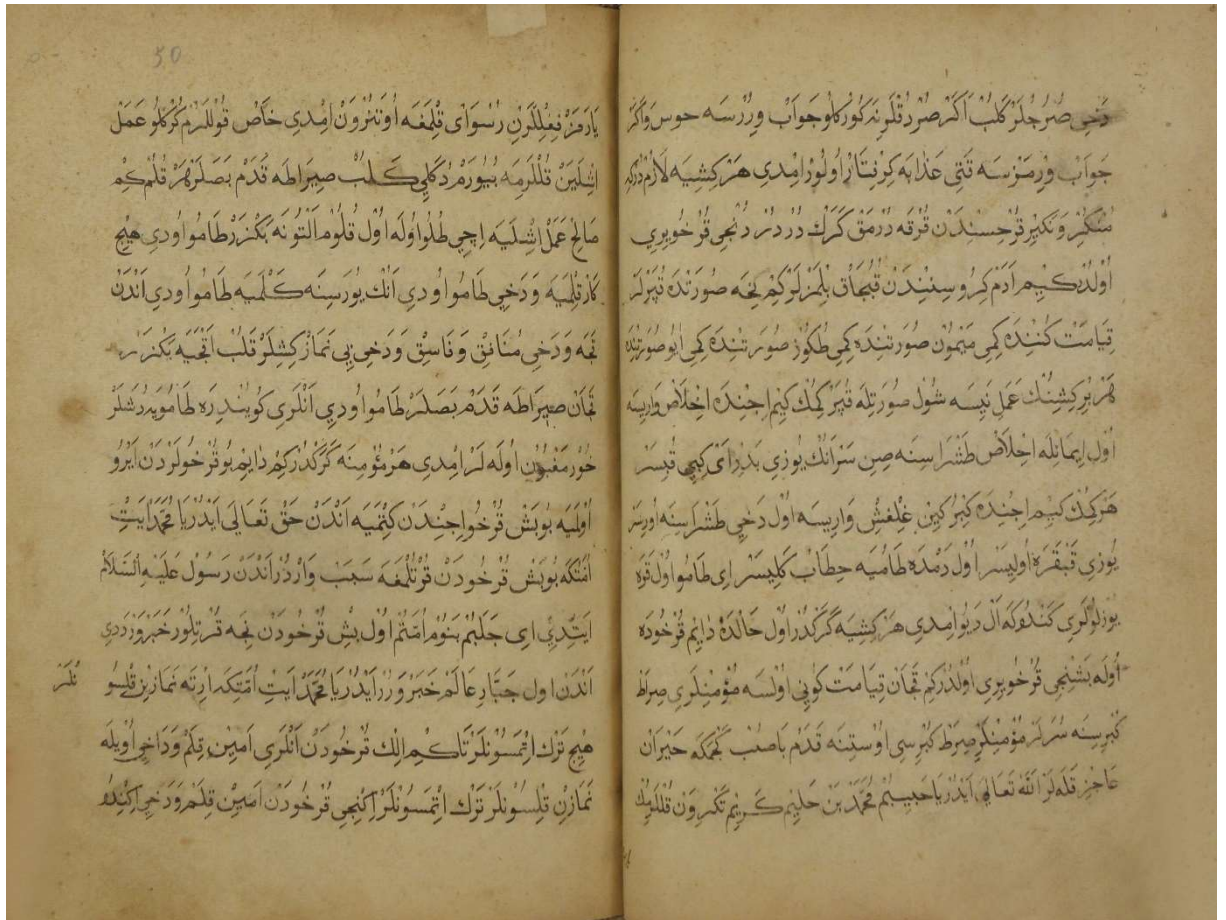 دَخِي صُرُجِلَرْ كَلُبْ اَكَرْ صُرْدُقْلَرِنَه كُورْكلُو جَوَابْ وِرُرْسَه خوس وَاكَرْ
جَوَابْ وِرِمَزْسَه قَتِي عَذَابَه كِرِفْتَارْ اُولُورْ اِمْدِي هَرْ كِشِيَه لَازِمْدُركِه
مُنْكِرْ وَنَكِيرْ قُرْخسِنْدَنْ قُرْقَه دُرْمَقْ كَرَكْ دُرْدُنْجِي قُرْخُويِرِي
اُولْدُركِيمْ آدَمْ كِرُو سِنِنْدَنْ قُبُجَاقْ بِلْمَزْلَرْكِمْ نِجَه صُورَتْدَه قُپَرْلَرْ
قِيَامَتْ كُنِنْدَه كِمِي مَيْمُونْ صُورَتِنْدَه كِمِي طُكُوزْ صُورَتِنْدَه كِمِي اَيُو صُورَتِنْدَه
هَرْ بِرْ كِشِنُكْ عَمَلِ نَيِسَه شُولْ صُورَتِلَه قُپَرْ كِمُكْ كِيمْ اِجِنْدَه اِخْلَاصْ وَارِيسَه
اُولْ اِيمَانِلَه اِخْلَاصْ طَشْرَاسِنَه صِنْ سَرْ اَنُكْ يُوزِي بَدِرْ آيْ كِيبِي قُپِسَرْ
هَرْ كِمُكْ كِيمْ اِجِنْدَه كِبْرْ كِينْ غِلْغِشْ وَارِيسَه اُولْ دَخِي طَشْرَاسِنَه اُورِسَرْ
يُوزِي قَپْقَرَه اُولِيسَرْ اُولْ دَمْدَه طَامُيَه خِطَابْ كَلِيسَرْ اَيْ طَامُو اُولْ قَرَه
يُوزْلُولَرِي كَنْدُوكَه آلْ دِيُو اِمْدِي هَرْ كِشِيَه كَرَكْدُرْ اُولْ حَالْدَه دَايِمْ قُرْخُودَه
اُولَه بَشِنْجِي قُرْخُويِرِي اُولْدُركِمْ قَچَانْ قِيَامَتْ كُونِي اُولْسَه مُؤْمِنْلَرِي صِرَاطْ
كُپْرِسِنَه سُرَلَرْ مُؤْمِنْلَرْ صِرَطْ كُپْرِسِي اُوسْتِنَه قَدَمْ بَاصُبْ كَچْمَكَه حَيْرَانْ
عَاجِزْ قَلَه لَرْ اَللّٰهُ تَعَالَى اَيْدُرْ يَا حَبِيبُمْ مُحَمَّدْ بَنْ حَلِيمْ كَرِيمْ تَكْرِيوَنْ قُلْلَرُمُكْ
50
يَارَمَزْ فِعِلْلَرِنْ رُسْوَايْ قِلْمَغَه اُوتَنُرْوَنْ اِمْدِي خَاصْ قُولْلَرُمْ كُرْكلُو عَمَلْ
اِشْلَيَنْ قُلْلَرُمَه بُيُورْمْ دُكَلِي كَلُبْ صِيرَاطَه قَدَمْ بَصَلَرْ هَرْ قُلُمْ كِمْ
صَالِحْ عَمَلْ اِشْلَيَه اِچِي طُلُو اُولَه اُولْ قُلُومْ اَلْتُونَه بَكْزَرْ طَامُو اُودِي هِيچْ
كَارْ قِلْمَيَه وَدَخِي طَامُو اُودِي اَنُكْ يُورَسِنَه كَلْمَيَه طَامُو اُودِي اَنْدَنْ
قَچَه وَدَخِي مُنَافِقْ وَفَاسِقْ وَدَخِي بِي نَمَازْ كِشِلَرْ قَلْبْ اَقْچَيَه بَكْزَرْ
قَچَانْ صِيرَاطَه قَدَمْ بَصَلَرْ طَامُو اُودِي اَنْلَرِي كُويِنْدِرَه طَامُويَه دُشَلَرْ
خُورْ مَغْبُونْ اُولَه لَرْ اِمْدِي هَرْ مُؤْمِنَه كَرَكْدُركِمْ دَايِمْ بُو قُرْخُولَرْدَنْ اَيْرُو
اُولْمَيَه بُو بَشْ قُرْخُو اِجِنْدَنْ كِتْمَيَه اَنْدَنْ حَقْ تَعَالَى اَيْدُرْ يَا مُحَمَّدْ اَيِتْ
اُمَّتُكَه بُو بَشْ قُرْخُودَنْ قُرْتُلْمَغَه سَبَبْ وَارْدُرْ اَنْدَنْ رَسُولْ عَلَيْهِ السَّلَامْ
اَيِتْدِي اَيْ جَلَبُمْ بَنُومْ اُمَّتُمْ اُولْ بَشْ قُرْخُودَنْ نِجَه قُرْتِلُورْ خَبَرْ وِرْدِدِي
اَنْدَنْ اُولْ جَبَّارِ عَالَمْ خَبَرْ وِرُرْ اَيْدُرْ يَا مُحَمَّدْ اَيِتْ اُمَّتُكَه اِرْتَه نَمَازِنْ قِلْسُو
نْلَرْ
هِيچْ تَرْكْ اِتْمَسُونْلَرْ تَاكِيمْ اِلْكْ قُرْخُودَنْ اَنْلَرِي اَمِينْ قِلَمْ وَدَاخِي اُويْلَه
نَمَازِنْ قِلْسُونْلَرْ تَرْكْ اِتْمَسُونْلَرْ اِكِنْجِي قُرْخُودَنْ اَمِينْ قِلَمْ وَدَخِي اِكِنْدُو